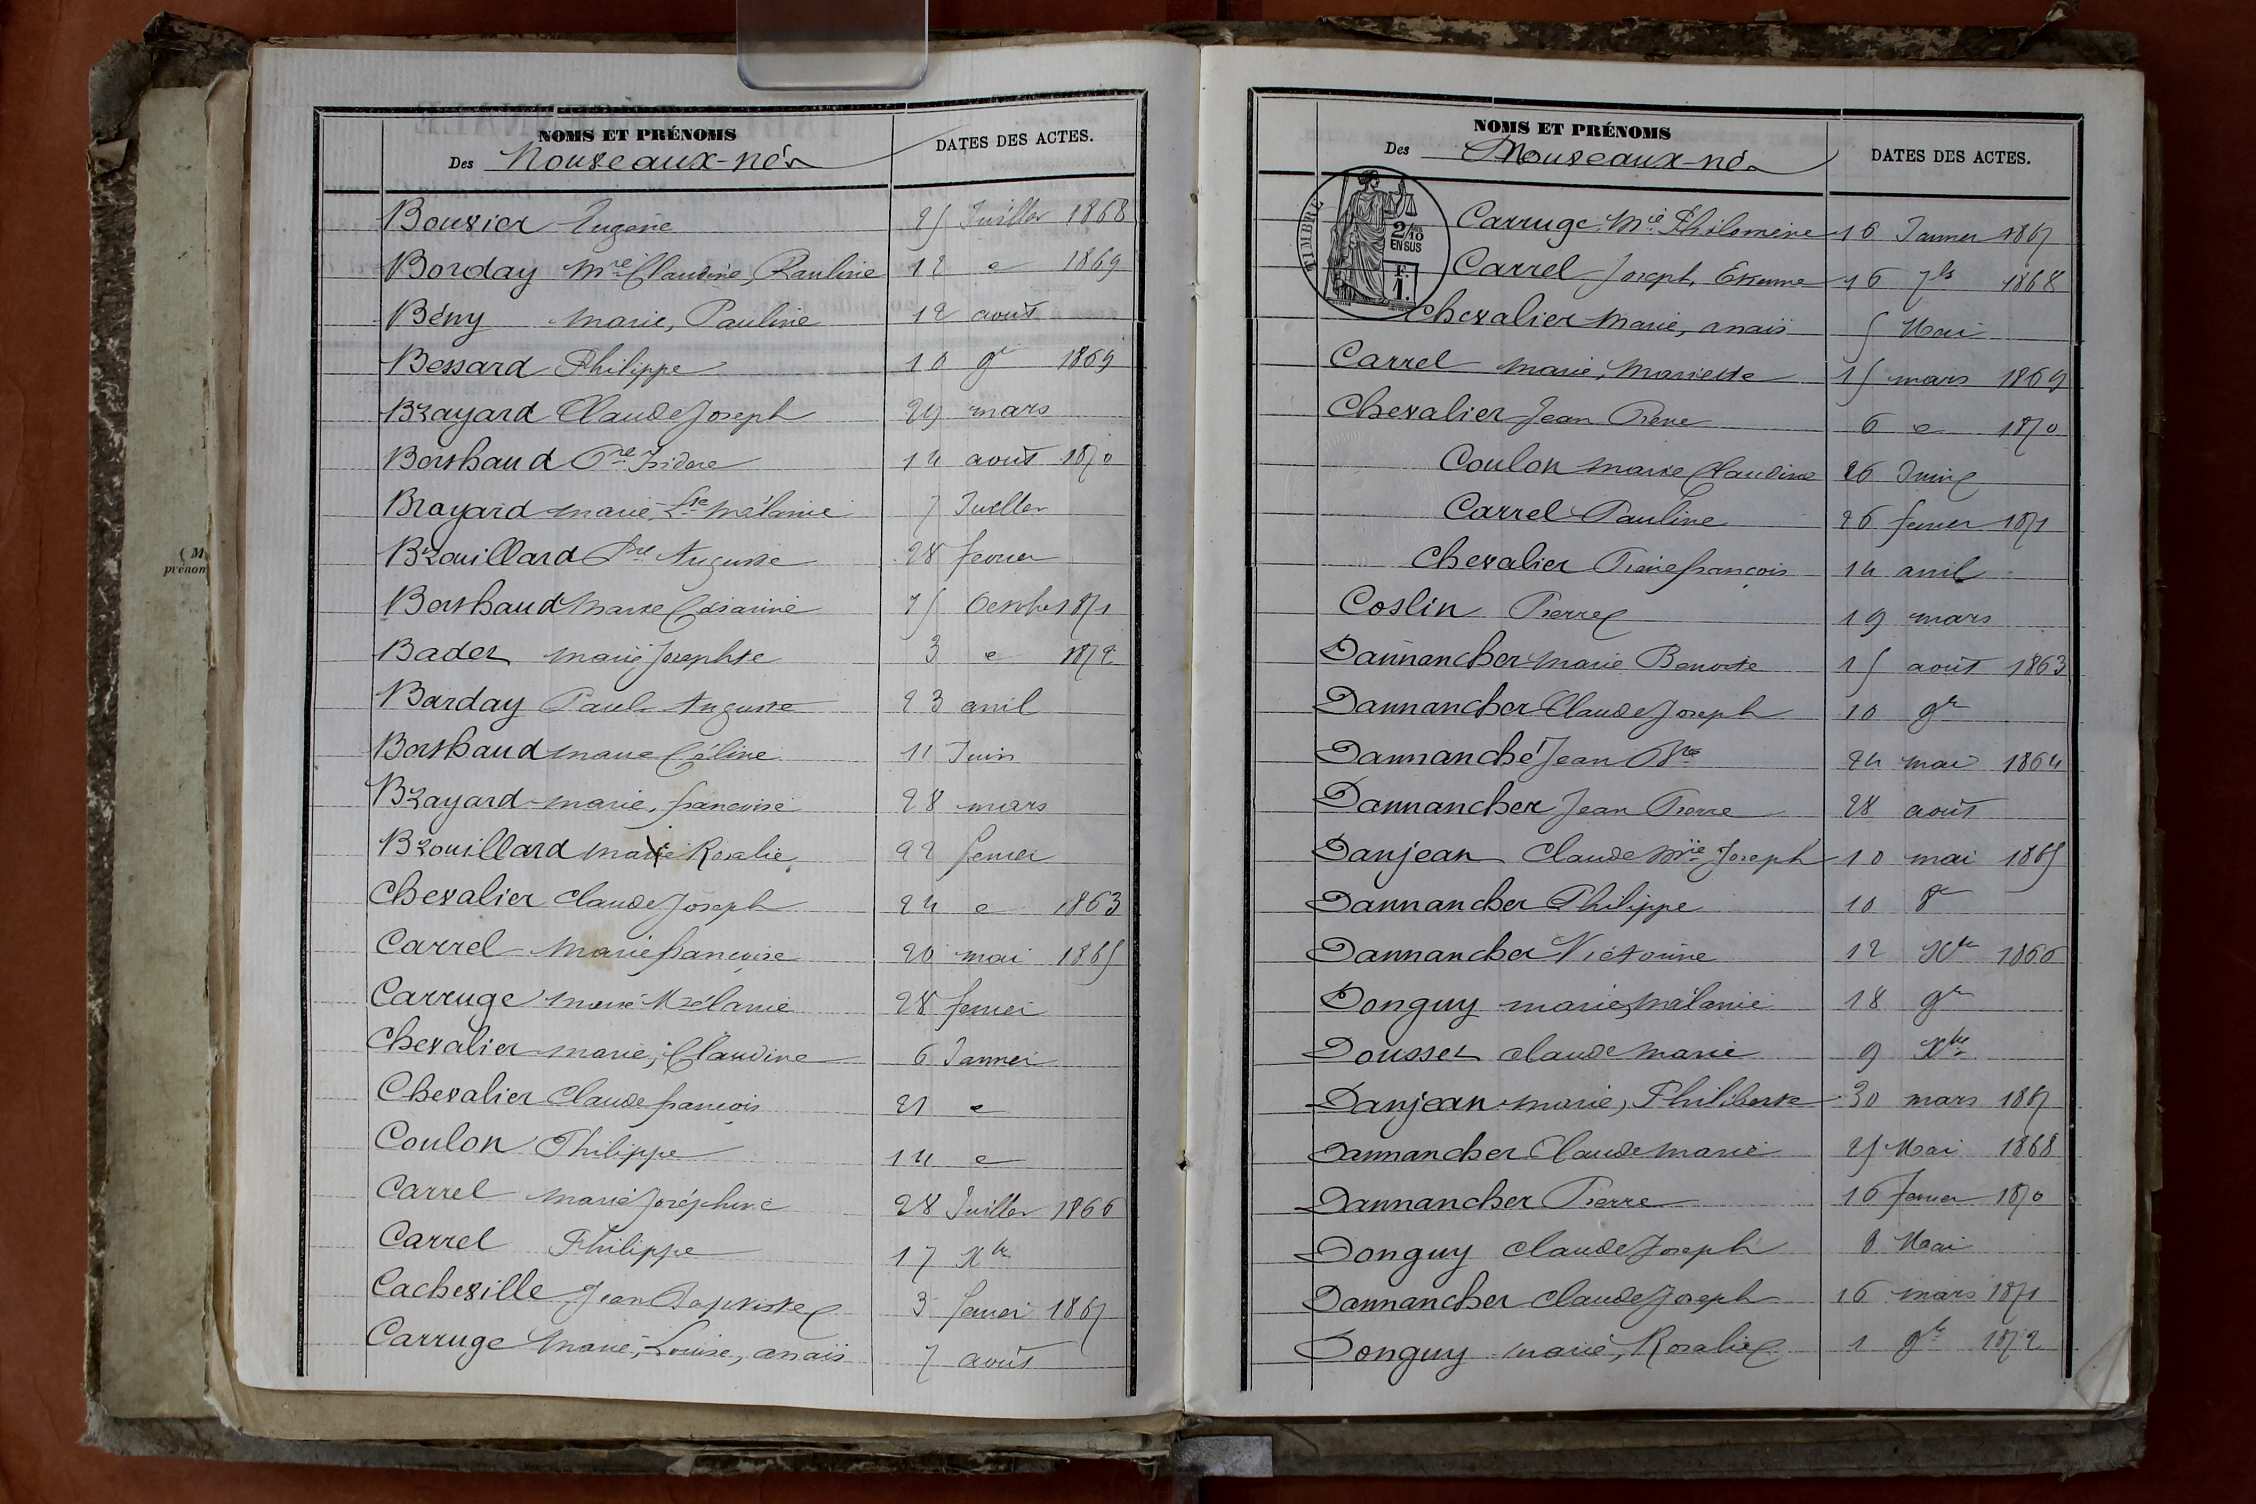 NOMS ET PRÉNOMS
Des Nouveaux-nés
DATES DES ACTES.
Bouvier Eugène 25 Juillet 1868
Borday Mie Claudine, Pauline 12 " 1869
Bény Marie, Pauline 12 aout
Bessard Philippe 10 9e 1869
Brayard Claude Joseph 29 mars
Berthaud Pre Isidore 14 aout 1870
Brayard Marie Lse Mélanie 7 Juillet
Brouillard Pre Auguste 28 fevrier
Berthaud Marie Césarine 15 Octobre 1871
Badet Marie Josephte 3 " 1872
Barday Paul Auguste 23 avril
Berthaud Marie Céline 11 Juin
Brayard Marie, françoise 28 mars
Brouillard Marie Rosalie 22 fevrier
Chevalier Claude Joseph 24 " 1863
Carrel Marie françoise 20 mai 1865
Carruge Marie Mélanie 28 fevrier
Chevalier Marie, Claudine 6 Janvier
Chevalier Claude françois 21 "
Coulon Philippe 14 "
Carrel Marie Joséphine 28 Juillet 1866
Carrel Philippe 17 Xbre
Cacheville Jean Baptiste 3 fevrier 1867
Carruge Marie, Louise, anaïs 7 aout
NOMS ET PRÉNOMS
Des Nouveaux-nés
DATES DES ACTES.
TIMBRE
2/10
EN SUS
F.
1.
Carruge Mie Philomène 16 Janvier 1867
Carrel Joseph, Etienne 16 7bre 1868
Chevalier Marie, anaïs 5 Mai
Carrel Marie, Mariette 15 mars 1869
Chevalier Jean Pierre 6 " 1870
Coulon Marie Claudine 26 Juin
Carrel Pauline 26 fevrier 1871
Chevalier Pierre françois 14 avril
Coslin Pierre 19 mars
Dannancher Marie Benoite 15 août 1863
Dannancher Claude Joseph 10 9bre
Dannanché Jean Bte 24 mai 1864
Dannancher Jean Pierre 28 août
Danjean Claude Mie Joseph 10 mai 1865
Dannancher Philippe 10 8e
Dannancher Victorine 12 Xbre 1866
Donguy Marie Mélanie 18 9bre
Dousset Claude Marie 9 Xbre
Danjean Marie, Philiberte 30 mars 1867
Dannancher Claude Marie 25 Mai 1868
Dannancher Pierre 16 fevrier 1870
Donguy Claude Joseph 8 Mai
Dannancher Claude Joseph 16 mars 1871
Donguy Marie, Rosalie 1 9bre 1872
(M
prénom